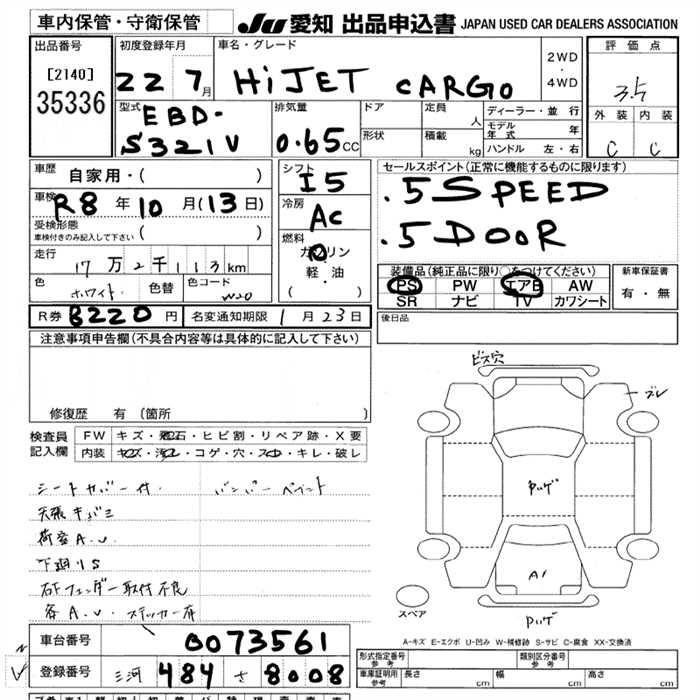 車内保管・守衛保管
JU 愛知 出品申込書 JAPAN USED CAR DEALERS ASSOCIATION
出品番号
[2140]
35336
初度登録年月
22 7月
車名・グレード
HiJET CARGO
2WD
・
4WD
評価点
3.5
外装 内装
C C
型式
EBD-
S321V
排気量
0.65cc
ドア
形状
定員
人
積載
kg
ディーラー・並行
モデル
年式 年
ハンドル 左・右
車歴
自家用・( )
車検
R8年10月(13日)
受検形態
車検付きのみ記入して下さい
( )
走行
17万2千113km
色
ホワイト
色替
色コード
W20
シフト
I5
冷房
AC
燃料
ガソリン
軽・油
( )
セールスポイント(正常に機能するものに限ります)
.5SPEED
.5DOOR
装備品(純正品に限り○をつけてください)
PS PW エアB AW
SR ナビ TV カワシート
新車保証書
有・無
R券 8220円 名変通知期限 1月23日
後日品
注意事項申告欄(不具合内容等は具体的に記入して下さい)
修復歴 有(箇所 )
検査員
記入欄
FW キズ・飛石・ヒビ割・リペア跡・X要
内装 キズ・汚れ・コゲ・穴・スレ・キレ・破レ
シートカバー付. バンパーペイント
天張キバミ
荷室A.U.
下廻りS
右Fフェンダー取付不良
各A.U. ステッカー有
ビス穴
A1
スペア
A-キズ E-エクボ U-凹み W-補修跡 S-サビ C-腐食 XX-交換済
車台番号 0073561
登録番号 三河 484 さ 8008
形式指定番号
参考
類別区分番号
参考
車庫証明用
参考
長さ cm 幅 cm 高さ cm